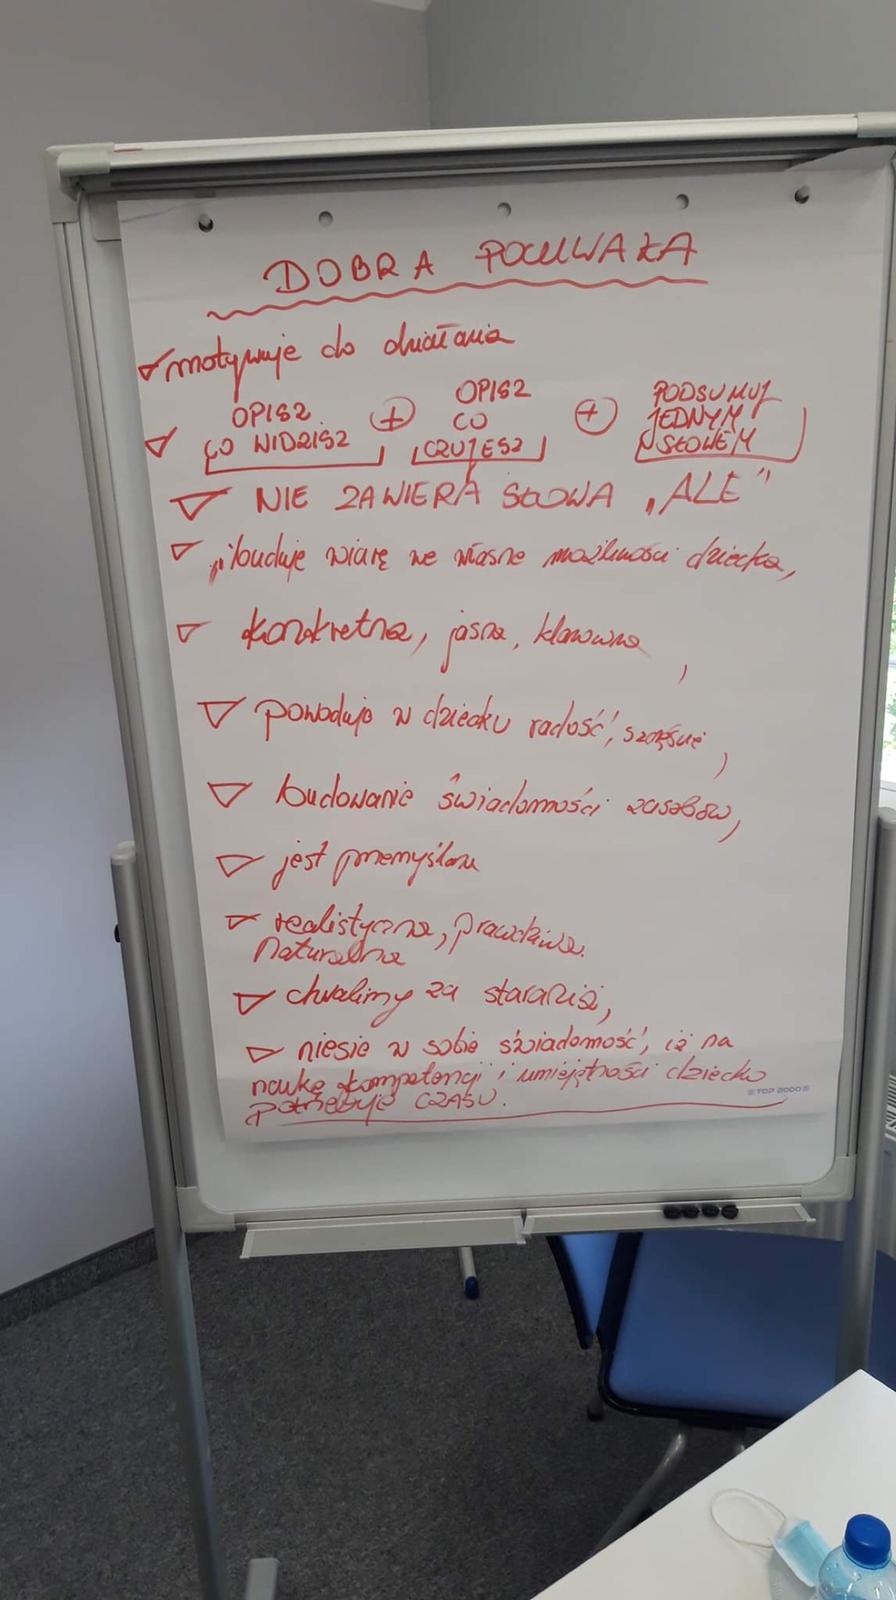 DOBRA POCHWAŁA
motywuje do działania
OPISZ CO WIDZISZ + OPISZ CO CZUJESZ + PODSUMUJ JEDNYM SŁOWEM
NIE ZAWIERA SŁOWA „ALE"
buduje wiarę we własne możliwości dziecka,
konkretna, jasna,
powoduje w dziecku radość, szczęście,
budowanie świadomości zasobów,
jest przemyślana
realistyczna, prawdziwa.
naturalna
chwalimy za starania,
niesie w sobie świadomość, iż na
naukę kompetencji i umiejętności dziecko
potrzebuje CZASU.
TOP 2000